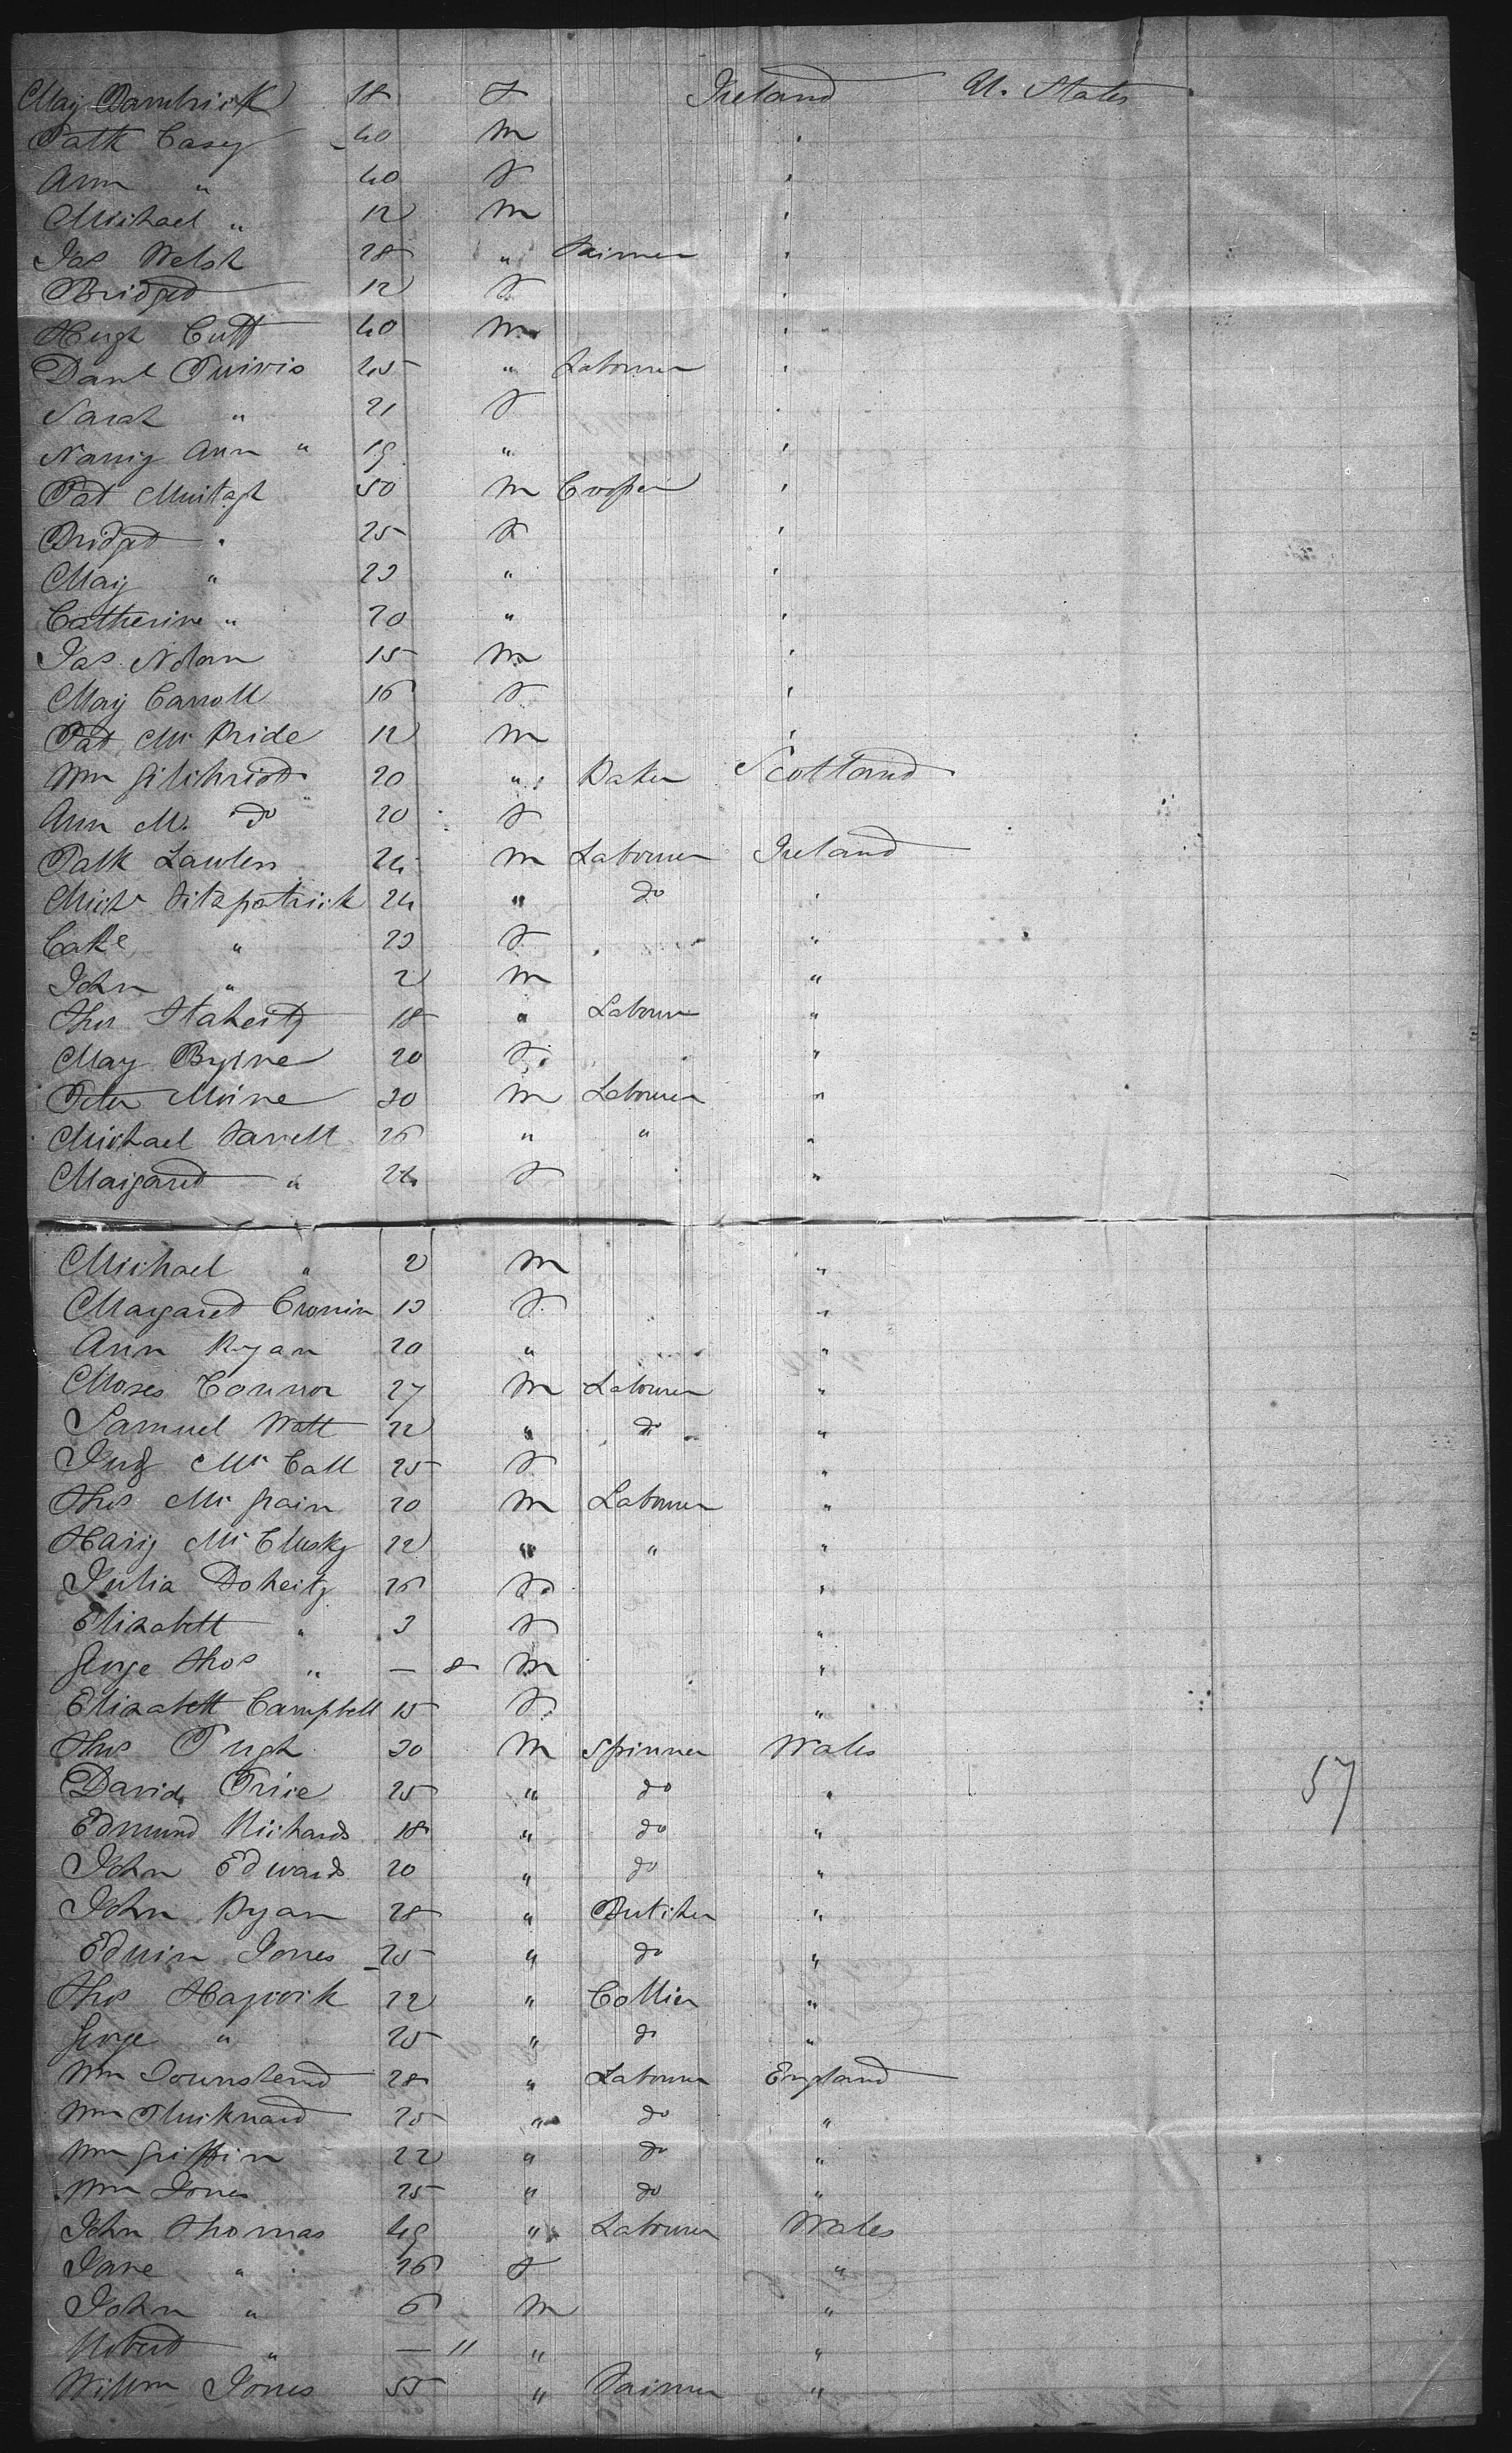 Mary Dambrick 18 F Ireland U. States
Patk Casey 40 M "
Ann " 40 F "
Michael " 12 M "
Jas Welsh 28 " Farmer "
Bridget 12 F "
Hugh Cutt 40 M "
Danl Purvis 25 " Labourer "
Sarah " 21 F "
Nancy Ann " 19 " "
Pat Murtagh 50 M Cooper "
Bridget " 25 F "
Mary " 23 " "
Catherine " 20 " "
Jas Nolan 15 M "
Mary Carroll 16 F "
Pat McBride 12 M "
Wm Gilchrist 20 " Baker Scotland
Ann M. do 20 F
Patk Lawler 24 M Labourer Ireland
Michl Fitzpatrick 24 " do "
Cate " 23 F "
John " 2 M "
Thos Flaherty 18 " Labourer "
Mary Byrne 20 F "
Peter Moine 30 M Labourer "
Michael Farrell 26 " " "
Margaret " 24 F "
Michael " 2 M "
Margaret Cronin 13 F "
Ann Ryan 20 " "
Moses Connor 27 M Labourer "
Samuel Watt 22 " do "
Judy McCall 25 F "
Thos McGrain 20 M Labourer "
Harry McClusky 22 " " "
Julia Doherty 26 F "
Elizabeth " 3 F "
George Thos " — 8 M "
Elizabeth Campbell 15 F "
Thos Pugh 30 M Spinner Wales
David Price 25 " do " 57
Edmund Richards 18 " do "
John Edwards 20 " do "
John Ryan 28 " Butcher "
Edwin Jones 25 " do "
Thos Hapwik 22 " Collier "
George " 25 " do "
Wm Townshend 28 " Labourer England
Wm Thicknard 25 " do "
Wm Griffin 22 " do "
Wm Jones 25 " do "
John Thomas 49 " Labourer Wales
Jane " 26 F "
John " 6 M "
Robert " — 11 " "
Willm Jones 55 " Farmer "